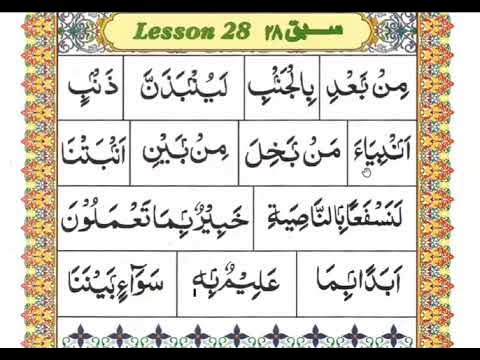 Lesson 28 سبق ۲۸
مِنْۢ بَعْدِ بِالْجَنْۢبِ لَيُنْۢبَذَنَّ ذَنْۢبٍ
اَنْۢبِيَآءَ مَنْۢ بَخِلَ مِنْۢ بَيْنِ اَنْۢبَتْنَا
لَنَسْفَعًاۢ بِالنَّاصِيَةِ خَبِيْرٌۢ بِمَا تَعْمَلُوْنَ
اَبَدًاۢ بِمَا عَلِيْمٌۢ بِهٖ سَوَآءٍۢ بَيْنَنَا